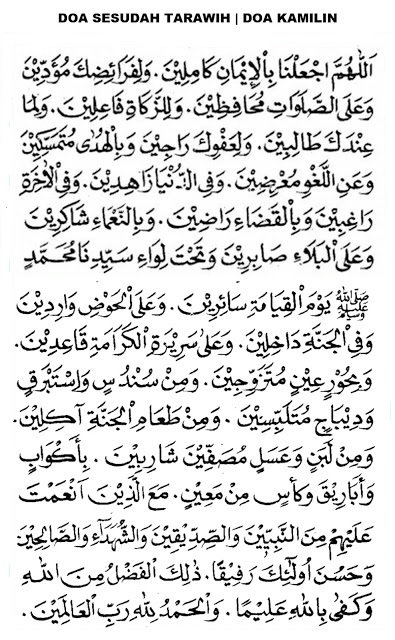 DOA SESUDAH TARAWIH | DOA KAMILIN
اَللّٰهُمَّ اجْعَلْنَا بِالْإِيْمَانِ كَامِلِيْنَ. وَلِفَرَائِضِكَ مُؤَدِّيْنَ
وَعَلَى الصَّلَوَاتِ مُحَافِظِيْنَ. وَلِلزَّكَاةِ فَاعِلِيْنَ. وَلِمَا
عِنْدَكَ طَالِبِيْنَ. وَلِعَفْوِكَ رَاجِيْنَ وَبِالْهُدٰى مُتَمَسِّكِيْنَ
وَعَنِ اللَّغْوِ مُعْرِضِيْنَ. وَفِى الدُّنْيَا زَاهِدِيْنَ. وَفِى الْآخِرَةِ
رَاغِبِيْنَ وَبِالْقَضَاءِ رَاضِيْنَ. وَبِالنَّعْمَاءِ شَاكِرِيْنَ
وَعَلَى الْبَلَاءِ صَابِرِيْنَ وَتَحْتَ لِوَاءِ سَيِّدِنَا مُحَمَّدٍ
ﷺ يَوْمَ الْقِيَامَةِ سَائِرِيْنَ. وَعَلَى الْحَوْضِ وَارِدِيْنَ
وَفِى الْجَنَّةِ دَاخِلِيْنَ. وَعَلَى سَرِيْرَةِ الْكَرَامَةِ قَاعِدِيْنَ.
وَبِحُوْرٍ عِيْنٍ مُتَزَوِّجِيْنَ. وَمِنْ سُنْدُسٍ وَاِسْتَبْرَقٍ
وَدِيْبَاجٍ مُتَلَبِّسِيْنَ. وَمِنْ طَعَامِ الْجَنَّةِ آكِلِيْنَ.
وَمِنْ لَبَنٍ وَعَسَلٍ مُصَفَّيْنِ شَارِبِيْنَ. بِأَكْوَابٍ
وَأَبَارِيْقَ وَكَأْسٍ مِنْ مَعِيْنٍ. مَعَ الَّذِيْنَ اَنْعَمْتَ
عَلَيْهِمْ مِنَ النَّبِيِّيْنَ وَالصِّدِّيْقِيْنَ وَالشُّهَدَآءِ وَالصَّالِحِيْنَ
وَحَسُنَ اُولٰئِكَ رَفِيْقًا. ذٰلِكَ الْفَضْلُ مِنَ اللهِ
وَكَفٰى بِاللهِ عَلِيْمًا. وَالْحَمْدُ لِلّٰهِ رَبِّ الْعَالَمِيْنَ.